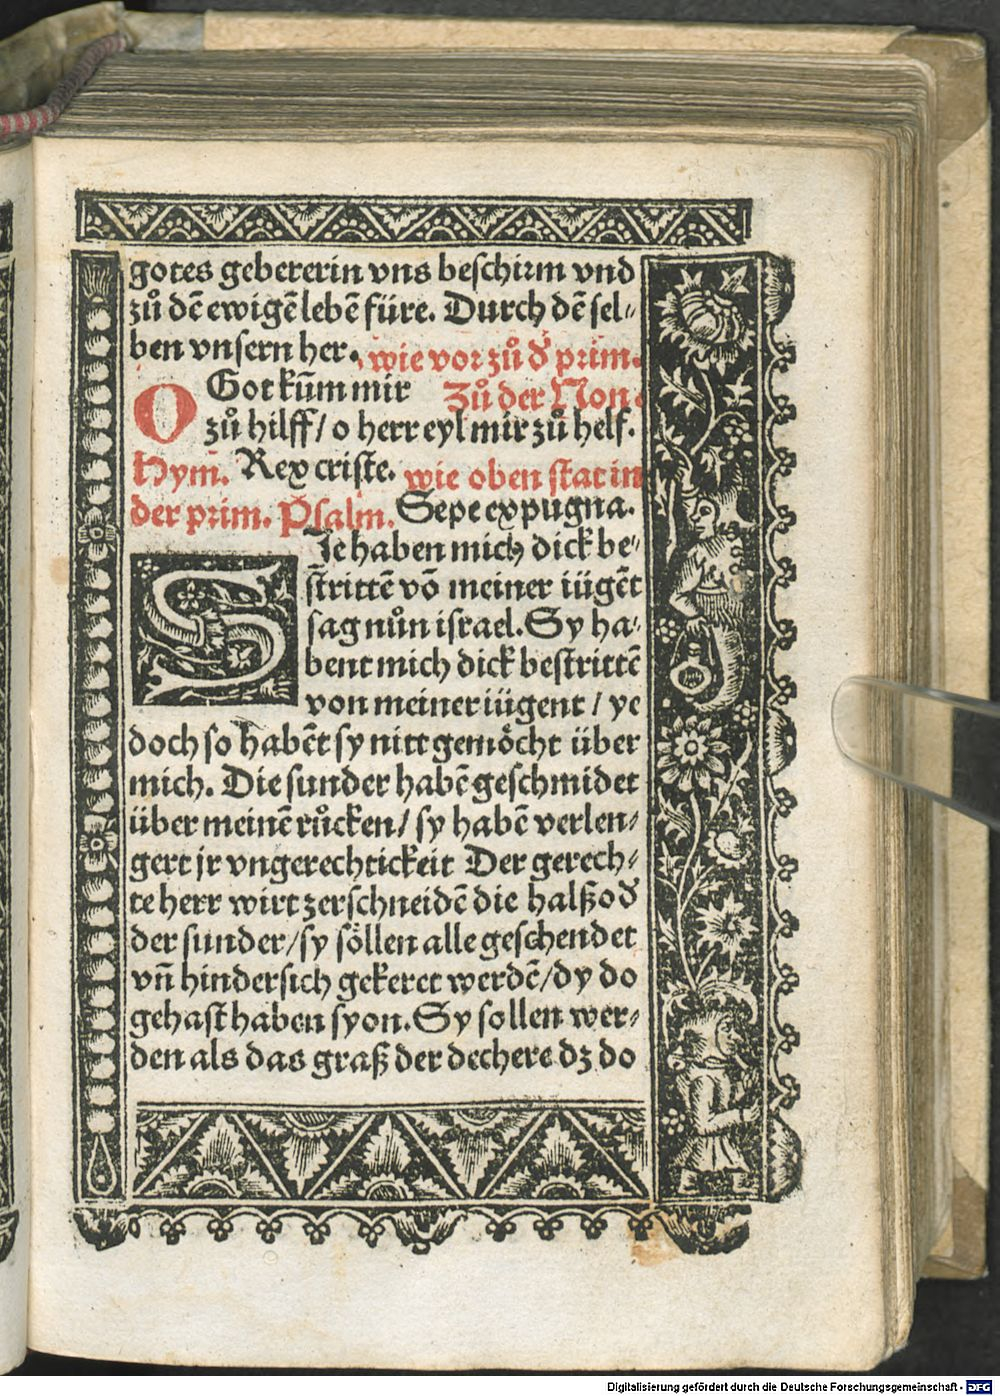 gotes gebererin vns beschirm vnd
zů dē ewigē lebē füre. Durch dē sel⸗
ben vnsern her. wie vor zů ď prim.
O Got kūm mir Zů der Non.
zů hilff/ o herr eyl mir zů helf.
Hym̄. Rex criste. wie oben stat in
der prim. Psalm. Sepe expugna.
SIe haben mich dick be⸗
strittē vō meiner iügēt
sag nůn israel. Sy ha⸗
bent mich dick bestrittē
von meiner iügent / ye
doch so habēt sy nitt gemöcht über
mich. Die sunder habē geschmidet
über meinē růcken/ sy habē verlen⸗
gert jr vngerechtickeit Der gerech⸗
te herr wirt zerschneidē die halß oď
der sunder/ sy söllen alle geschendet
vn̄ hindersich gekeret werdē/ dy do
gehast haben syon. Sy sollen wer⸗
den als das graß der dechere dz do
Digitalisierung gefördert durch die Deutsche Forschungsgemeinschaft - DFG